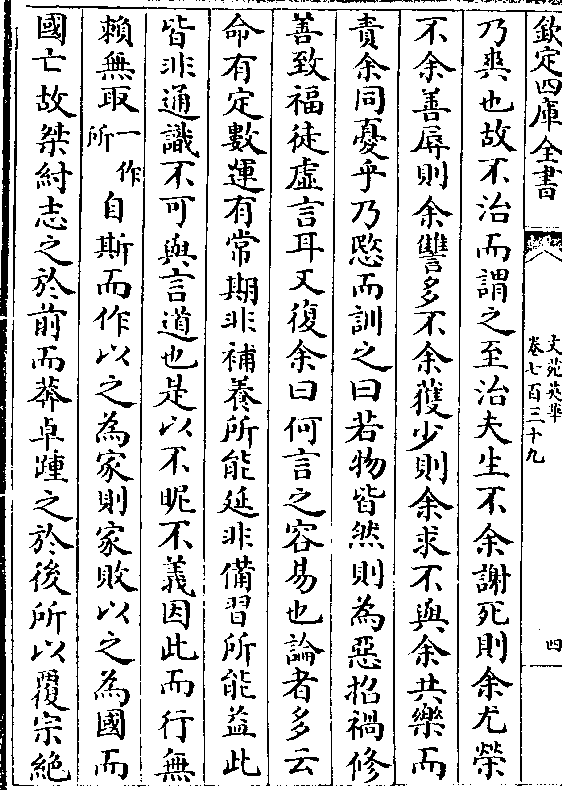 欽定四庫全書
文苑英華
卷七百三十九
四
乃爽也故不治而謂之至治夫生不余謝死則余尤榮
不余善辱則余讐多不余獲少則余求不與余共樂而
責余同憂乎乃愍而訓之曰若物皆然則為惡招禍修
善致福徒虛言耳又復余曰何言之容易也論者多云
命有定數運有常期非補養所能延非備習所能益此
皆非通識不可與言道也是以不昵不義因此而行無
賴無取一作所自斯而作以之為家則家敗以之為國而
國亡故桀紂志之於前而莽卓踵之於後所以覆宗絶